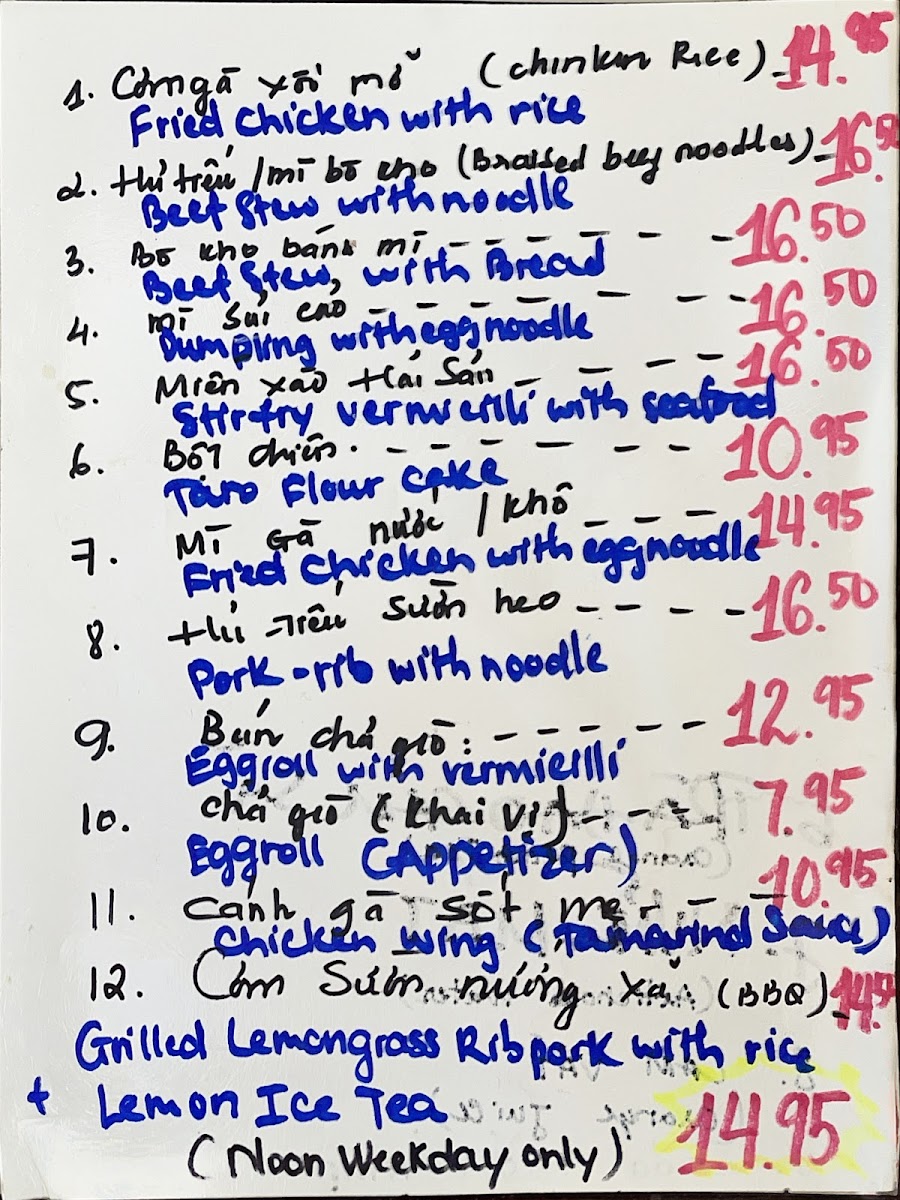 1. Cơm gà xối mỡ (chinken Rice) - 14.95
Fried chicken with rice
2. Hủ tiếu / mì bò kho (Braised beef noodles) - 16.50
Beef Stew with noodle
3. Bò kho bánh mì - - - - - - 16.50
Beef Stew, with Bread
4. mì Sủi cảo - - - - - - - 16.50
Dumpling with egg noodle
5. Miến xào Hải Sản - - - - 16.50
Stir-fry vermicilli with seafood
6. Bột chiên. - - - - - - 10.95
Taro Flour cake
7. Mì Gà nước / khô - - - 14.95
Fried Chicken with egg noodle
8. Hủ Tiếu sườn heo - - - - 16.50
Pork-rib with noodle
9. Bún chả giò: - - - - - 12.95
Eggroll with vermicilli
10. chả giò (khai vị) - - - - 7.95
Eggroll (Appetizer)
11. cánh gà sốt me - - - 10.95
chicken wing (Tamarind Sauce)
12. Cơm Sườn nướng xả (BBQ) -
Grilled Lemongrass Rib pork with rice
+ Lemon Ice Tea
(Noon Weekday only) 14.95